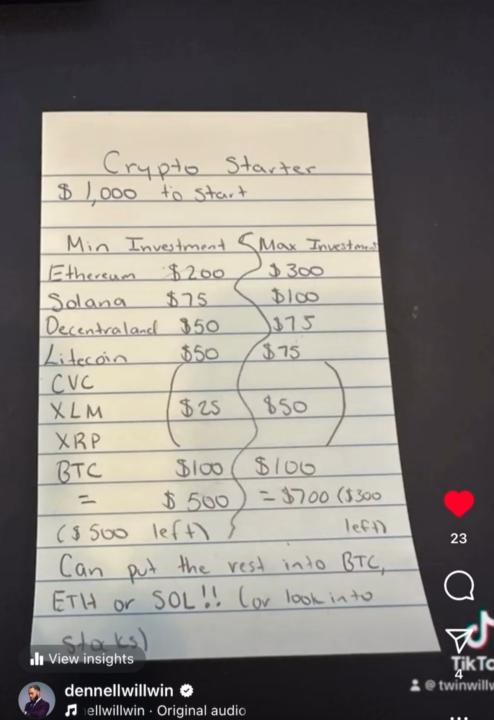 Crypto Starter
$1,000 to start
Min Investment Max Investment
Ethereum $200 $300
Solana $75 $100
Decentraland $50 $75
Litecoin $50 $75
CVC
XLM $25 $50
XRP
BTC $100 $100
= $500 = $700 ($300
($500 left) left)
Can put the rest into BTC,
ETH or SOL!! (or look into
stocks)
23
4
TikTo
@twinwillw
View insights
dennellwillwin
ellwillwin · Original audio